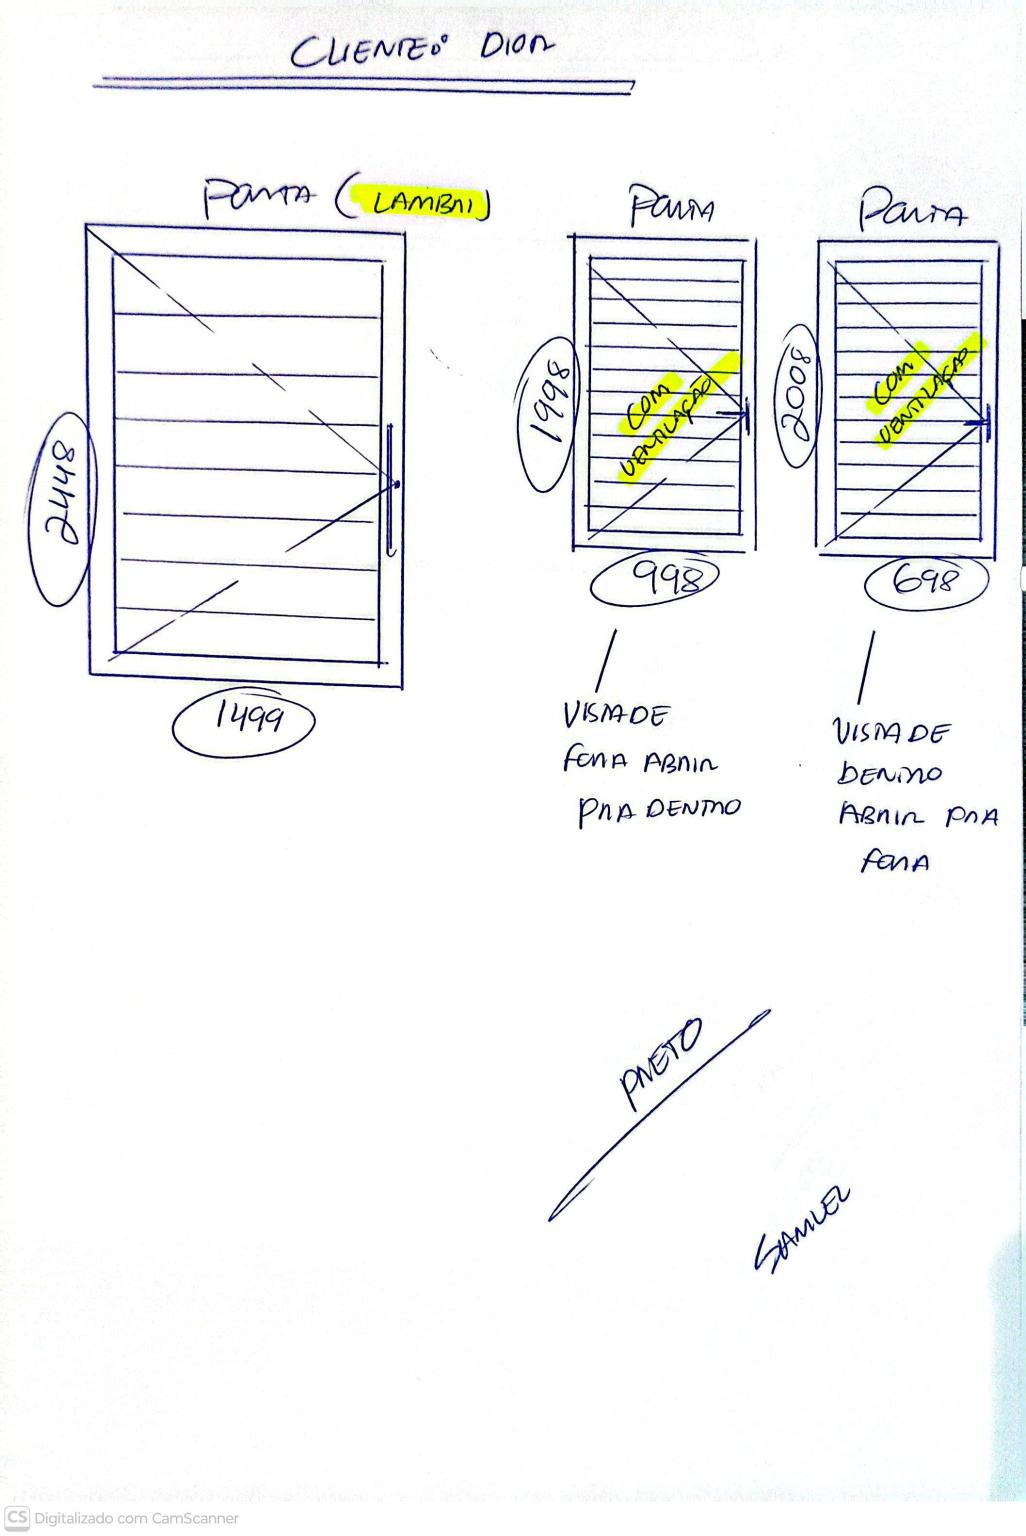 CLIENTE: DIOR
PORTA (LAMBRI)
PORTA
PORTA
2448
1499
1998
COM
VENTILAÇÃO
998
2008
COM
VENTILAÇÃO
698
VISTA DE
FORA ABRIR
PRA DENTRO
VISTA DE
DENTRO
ABRIR PRA
FORA
PRETO
SAMUEL
CS Digitalizado com CamScanner